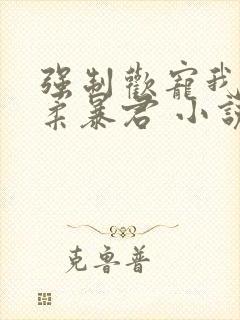 强制歡寵我
柔暴君 小說
克魯普